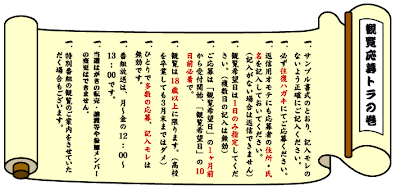 観覧応募トラの巻
一、サンプル書式のとおり、記入モレの
ないよう正確にご記入ください。
一、必ず往復ハガキにてご応募ください。
一、返信用オモテにも応募者の住所・氏
名を記入しておいてください。
(記入がない場合は返信できません)
一、観覧希望日は1日のみ指定してくだ
さい。(複数日の記入は無効)
一、ご応募は「観覧希望日」の1ヶ月前
から受付開始。「観覧希望日」の10
日前必着で。
一、観覧は18歳以上に限ります。(高校
を卒業しても3月末まではダメ)
一、ひとりで多数の応募、記入モレは
無効です。
一、番組放送は、月~金の12:00~
13:00です。
一、当選はがきの転売・譲渡等や参加メンバー
の変更はできません。
一、特別番組の観覧のご案内をさせていた
だく場合もございます。